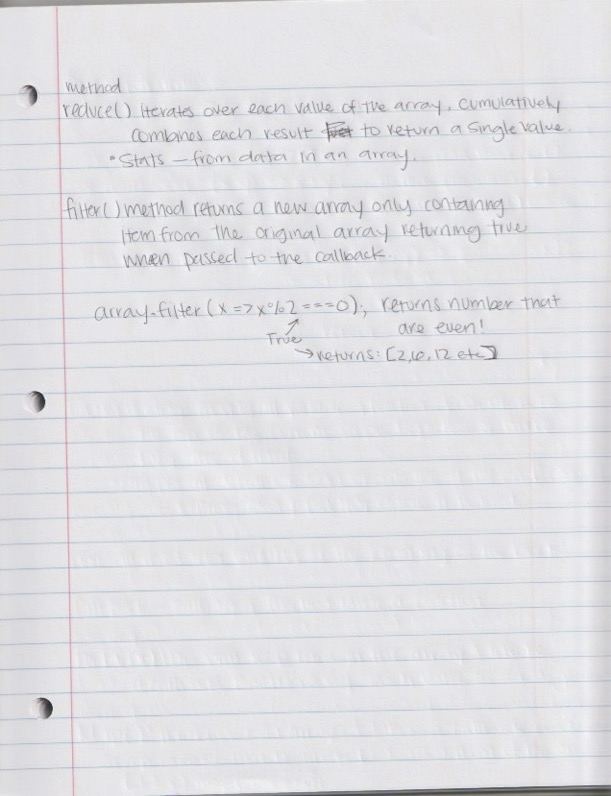 method
reduce() Iterates over each value of the array, cumulatively
combines each result to return a single value.
• Stats – from data in an array.
filter() method returns a new array only containing
Item from the original array returning true
when passed to the callback.
array.filter(x => x % 2 === 0); returns number that
are even!
True
→ returns: [2,6,12 etc]